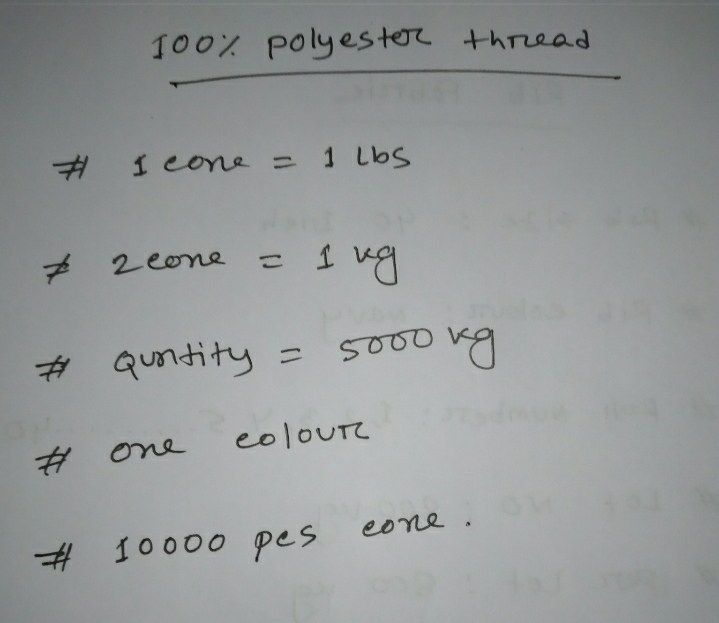 100% polyester thread
# 1 cone = 1 Lbs
# 2 cone = 1 kg
# Quntity = 5000 kg
# one colour
# 10000 pcs cone.